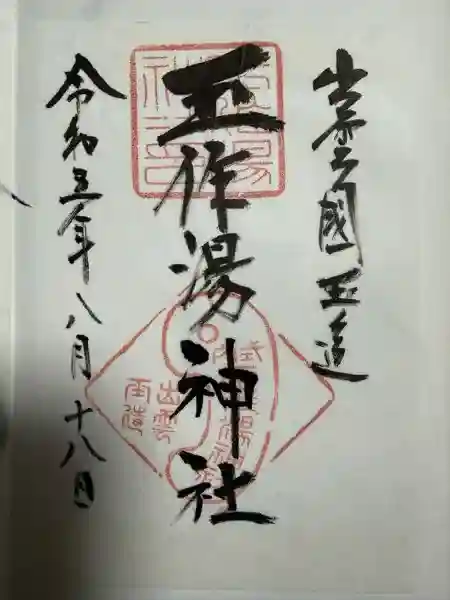 出雲國玉造
玉作湯神社
令和五年八月十八日
出雲
玉造